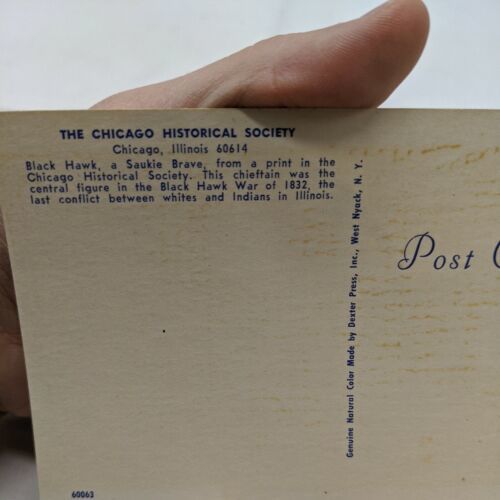 THE CHICAGO HISTORICAL SOCIETY
Chicago, Illinois 60614
Black Hawk, a Saukie Brave, from a print in the
Chicago Historical Society. This chieftain was the
central figure in the Black Hawk War of 1832, the
last conflict between whites and Indians in Illinois.
Genuine Natural Color Made by Dexter Press, Inc., West Nyack, N. Y.
Post C
60063